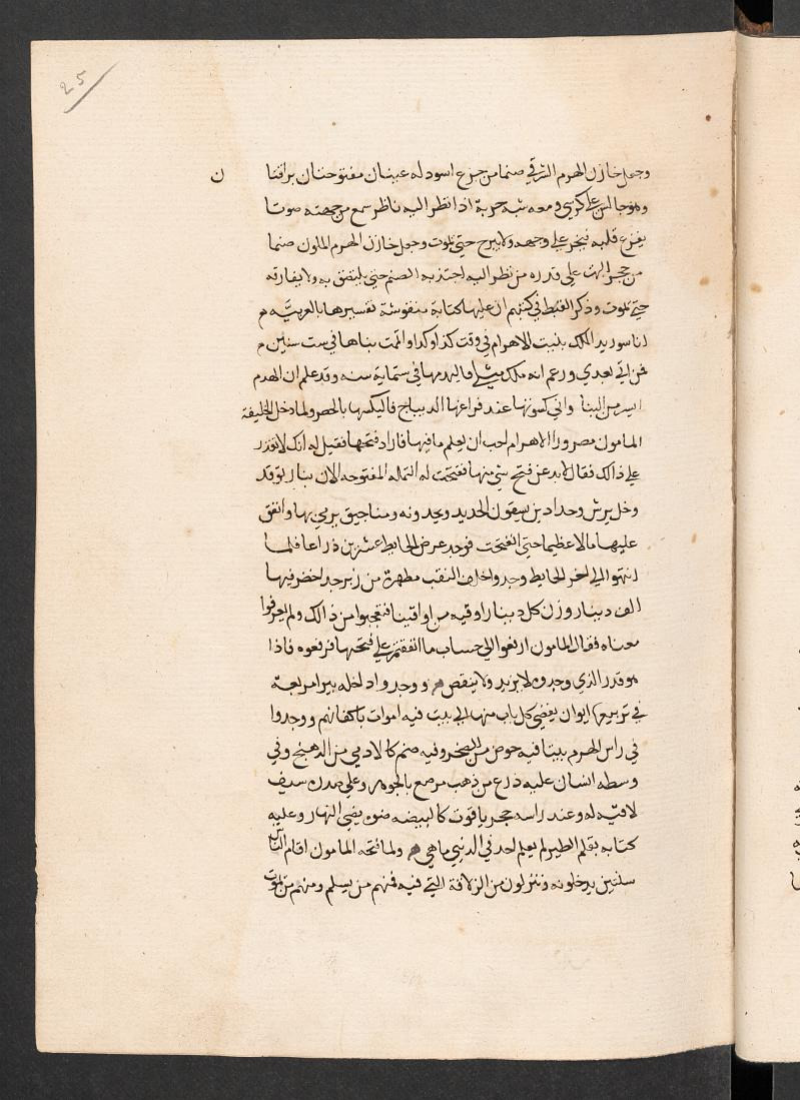 25
وجعل خازن الهرم الشرقي صنما من جزع اسود له عينان مفتوحتان براقتا ن
وهو جالس على كرسي ومعه شبه حربة اذا نظر اليه ناظر سمع من جهته صوتا
يفزع قلبه فيخر على وجهه ولا يبرح حتى يموت وجعل خازن الهرم الملون صنما
من حجر البهت على قدره من نظر اليه اجتذبه الصنم حتى يلتصق به ولا يفارقه
حتى يموت وذكر القبط في كتبهم ان عليها كتابة منقوشة تفسيرها بالعربيه م
انا سوريد الملك بنيت الاهرام في وقت كذا وكذا واتممت بناها في ست سنين م
فمن اتى بعدي وزعم انه ملك مثلي فاليهدمها في ستماية سنه وقد علم ان الهدم
ايسر من البنا واني كسوتها عند فراغها الديباج فاليكسها بالحصر ولما دخل الخليفة
المامون مصر وراا الاهرام احب ان يعلم ما فيها فاراد فتحها فقيل له انك لا تقدر
على ذالك فقال لابد عن فتح شي منها ففتحت له الثلمه المفتوحه الان بنار توقد
وخل يرش وحدادين يسقون الحديد ويحدونه ومناجيق يرمي بها وانفق
عليها مالا عظيما حتى انفتحت فوجد عرض الحايط عشرين ذراعا فلما
انتهوا الى اخر الحايط وجدوا خلف النقب مطهرة من زبرجد اخضر فيها
الف دينار وزن كل دينار اوقيه من اواقينا فتعجبوا من ذالك ولم يعرفوا
معناه فقال المامون ارفعوا الي حساب ما انفقتم على فتحها فرفعوه فاذا
هو قدر الذي وجدوه لا يزيد ولا ينقص هم ووجدوا داخله بيرا مربعة
في تربيعها ايوان يفضي كل باب منها الى بيت فيه اموات باكفانهم ووجدوا
في راس الهرم بيتا فيه حوض من الصخر وفيه صنم كالادمي من الدهنج وفي
وسطه انسان عليه درع من ذهب مرصع بالجوهر وعلى صدره سيف
لا قيمة له وعند راسه حجر ياقوت كالبيضه ضوه يضي النهار وعليه
كتابه بقلم الطير لم يعلم احد في الدنيى ما هي هم ولما فتحه المامون اقام الناس
سنتين يدخلونه وينزلون من الزلاقة التي فيه فمنهم من يسلم ومنهم من يموت